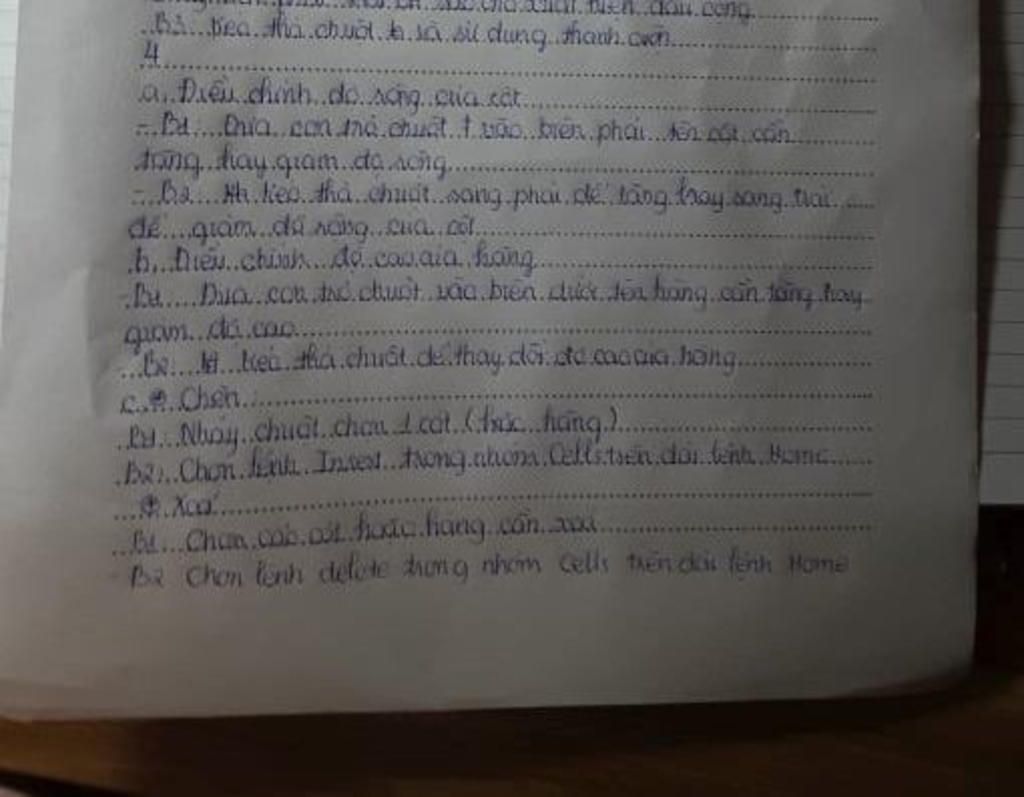 xuất hiện dấu cộng
B3: kéo thả chuột sử dụng thanh cuốn
4
a, Điều chỉnh độ rộng của cột
- B1: Đưa con trỏ chuột vào biên phải tên cột cần
tăng hay giảm độ rộng
- B2: kéo thả chuột sang phải để tăng hay sang trái
để giảm độ rộng của cột
b, Điều chỉnh độ cao của hàng
- B1: Đưa con trỏ chuột vào biên dưới tên hàng cần tăng hay
giảm độ cao
- B2: kéo thả chuột để thay đổi độ cao của hàng
c, Chèn:
B1: Nháy chuột chọn 1 cột (hoặc hàng)
B2: Chọn lệnh Insert trong nhóm Cells trên dải lệnh Home
Xoá
B1: Chọn các cột hoặc hàng cần xoá
- B2 Chọn lệnh delete trong nhóm Cells trên dải lệnh Home